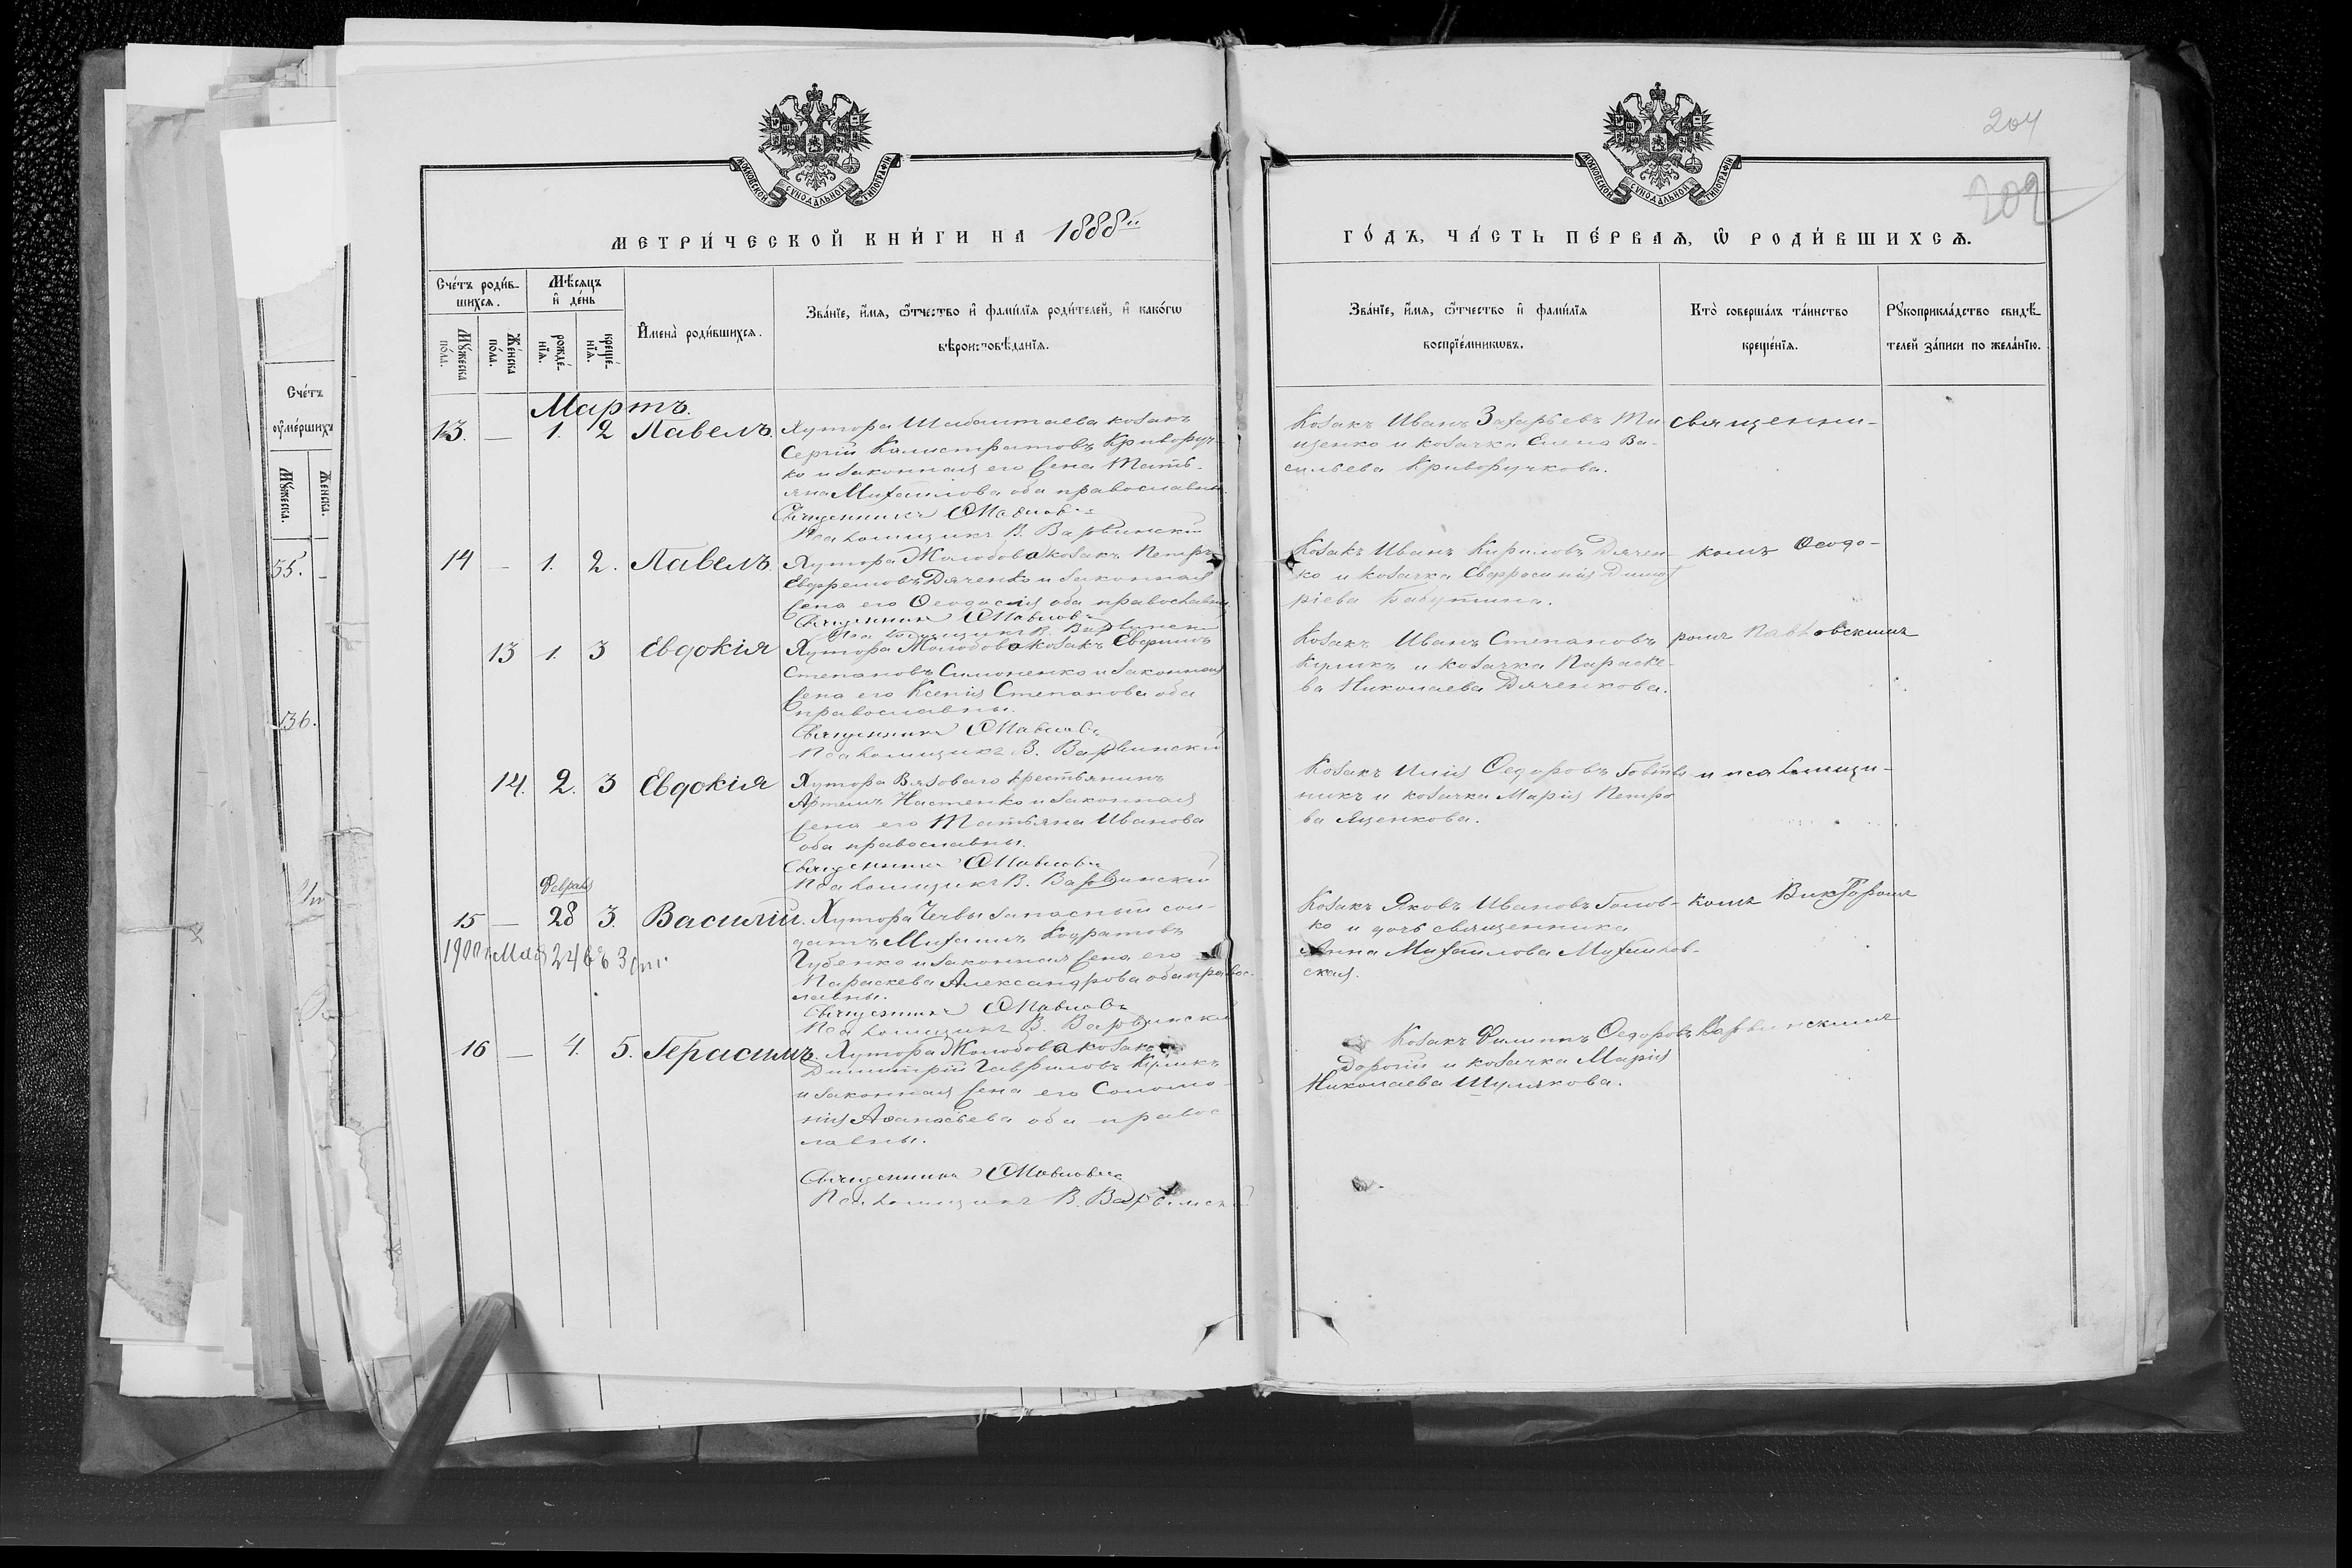 204
202
МОСКОВСКОЙ СѴНОДАЛЬНОЙ ТИПОГРАФІИ
МОСКОВСКОЙ СѴНОДАЛЬНОЙ ТИПОГРАФІИ
МЕТРИ́ЧЕСКОЙ КНИ́ГИ НА 1888й
ГО́ДЪ, ЧА́СТЬ ПЕ́РВАѦ, Ѡ РОДИ́ВШИХСѦ.
Сче́тъ роди́в-
шихсѧ.
Мѣ́сѧцъ
и҆ де́нь
Мꙋ́жеска по́ла.
Же́нска по́ла.
рожде́-нїѧ.
креще́-нїѧ.
И҆мена̀ роди́вшихсѧ.
Зва́нїе, и҆́мѧ, ѻ҆́тчество и҆ фами́лїѧ роди́телей, и҆ како́гѡ
вѣроисповѣ́данїѧ.
Зва́нїе, и҆́мѧ, ѻ҆́тчество и҆ фами́лїѧ
воспрїе́мникѡвъ.
Кто̀ соверша́лъ та́инство
креще́нїѧ.
Рꙋкоприкла́дство свидѣ́-
телей за́писи по жела́нїю.
Сче́тъ
ᲂу҆ме́ршихъ
Мꙋ́жеска.
Же́нска.
55. –
136.
Мартъ.
13. — 1. 2 Павелъ.
Хутора Шабалтаева козакъ
Сергій Калистратовъ Криворуч-
ко и законная его жена Тать-
яна Михаилова оба православны.
Священникъ Ѳ Павловъ
Псаломщикъ В. Варвинскій
Козакъ Иванъ Захарьевъ Ти
щенко и козачка Елена Ва-
сильева Криворучкова.
священни-
14 — 1. 2. Павелъ.
Хутора Молодова козакъ Петръ
Евфремовъ Дяченко и законная
жена его Ѳеодосія оба православны
Священникъ Ѳ Павловъ
Псаломщикъ В. Варвинскій
Козакъ Иванъ Кириловъ Дячен-
ко и козачка Евфросинія Димит
ріева Бабутина.
комъ Ѳеодо-
13 1. 3 Евдокія
Хутора Молодова козакъ Евфимъ
Степановъ Симоненко и законная
жена его Ксенія Степанова оба
православны.
Священникъ Ѳ Павловъ
Псаломщикъ В. Варвинскій
Козакъ Иванъ Степановъ
Куликъ и козачка Параске-
ва Николаева Дяченкова.
ромъ Павловскимъ
14. 2. 3 Евдокія
Хутора Вязоваго крестьянинъ
Артемъ Настенко и законная
жена его Татьяна Иванова
оба православны.
Священникъ Ѳ Павловъ
Псаломщикъ В. Варвинскій
Козакъ Илія Ѳедоровъ Говтвя
никъ и козачка Марія Петро
ва Яценкова.
и псаломщи-
Февраля
15 — 28 3. Василій.
Хутора Чевы запасный сол-
датъ Михаилъ Кодратовъ
Губенко и законная жена его
Параскева Александрова оба правос-
лавны.
Священникъ Ѳ Павловъ
Псаломщикъ В. Варвинскій
Козакъ Яковъ Ивановъ Голов-
ко и дочь священника
Анна Михаилова Михайлов-
ская.
комъ Викторомъ
1900 г Мая 24
16 — 4. 5. Герасимъ.
Хутора Молодова козакъ
Димитрій Гавриловъ Куликъ
и законная жена его Соломо-
нія Аѳанасьева оба правос
лавны.
Священникъ Ѳ Павловъ
Псаломщикъ В. Варвинскій
Козакъ Филиппъ Ѳедоровъ
Дорогій и козачка Марія
Николаева Шулякова.
Варвинскимъ